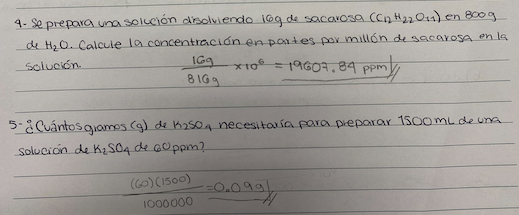 4- Se prepara una solución disolviendo 16g de sacarosa (C12 H22 O11) en 800g
de H2O. Calcule la concentración en partes por millón de sacarosa en la
solución.
16g
816g
×10⁶ = 19607.84 ppm
5- ¿Cuántos gramos (g) de K2SO4 necesitaría para preparar 1500 mL de una
solución de K2SO4 de 60ppm?
(60)(1500)
1000000
=0.09g